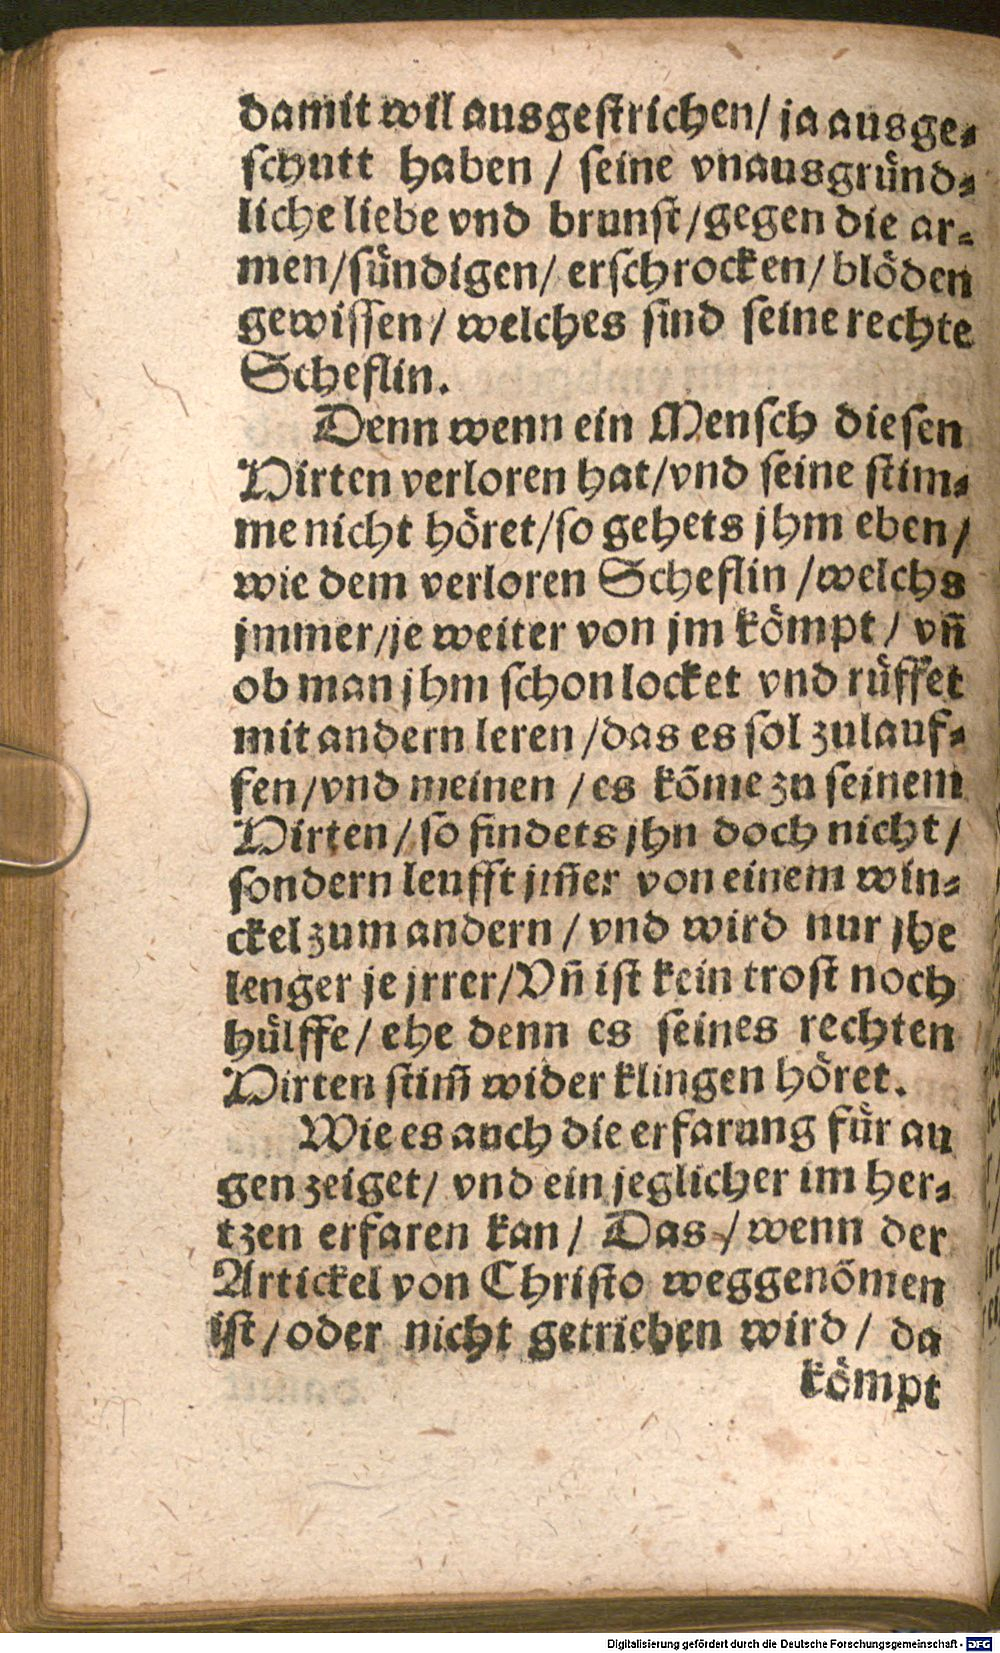 damit wil ausgestrichen/ ja ausge-
schutt haben / seine vnausgründ-
liche liebe vnd brunst/gegen die ar-
men/sündigen/ erschrocken/ blöden
gewissen/ welches sind seine rechte
Scheflin.
Denn wenn ein Mensch diesen
Hirten verloren hat/vnd seine stim-
me nicht höret/so gehets jhm eben/
wie dem verloren Scheflin /welchs
jmmer/je weiter von jm kömpt/ vñ
ob man jhm schon locket vnd rüffet
mit andern leren /das es sol zulauf-
fen/vnd meinen / es kõme zu seinem
Hirten/ so findets jhn doch nicht/
sondern leufft jm̃er von einem win-
ckel zum andern / vnd wird nur jhe
lenger je jrrer/Vñ ist kein trost noch
hülffe/ ehe denn es seines rechten
Hirten stim̃ wider klingen höret.
Wie es auch die erfarung für au
gen zeiget/ vnd ein jeglicher im her-
tzen erfaren kan/ Das / wenn der
Artickel von Christo weggenõmen
ist/oder nicht getrieben wird/ da
kömpt
Digitalisierung gefördert durch die Deutsche Forschungsgemeinschaft - DFG